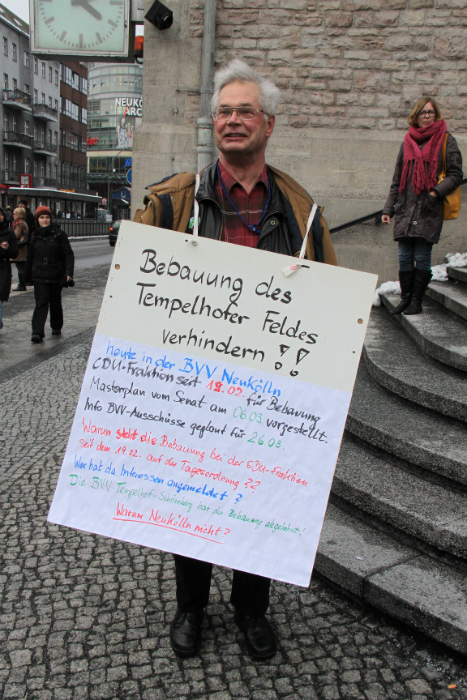 NEUKÖ
Bebauung des
Tempelhofer Feldes
verhindern !!
heute in der BVV Neukölln
CDU-Fraktion seit 19.02 für Bebauung
Masterplan vom Senat am 06.03 vorgestellt.
Info BVV-Ausschüsse geplant für 26.03
Warum steht die Bebauung bei der CDU-Fraktion
seit dem 19.02. auf der Tagesordnung ??
Wer hat da Interessen angemeldet ?
Die BVV Tempelhof-Schöneberg hat die Bebauung abgelehnt!
Warum Neukölln nicht?